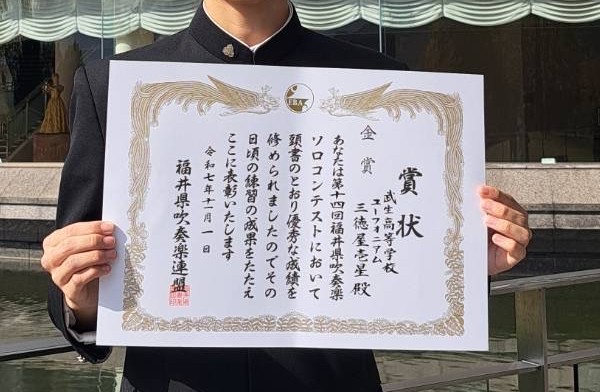 賞状
武生高等学校
ユーフォニアム
三徳屋壱星 殿
金賞
あなたは第十四回福井県吹奏楽
ソロコンテストにおいて
頭書のとおり優秀な成績を
修められましたのでその
日頃の練習の成果をたたえ
ここに表彰いたします
令和七年十一月一日
福井県吹奏楽連盟
FBA